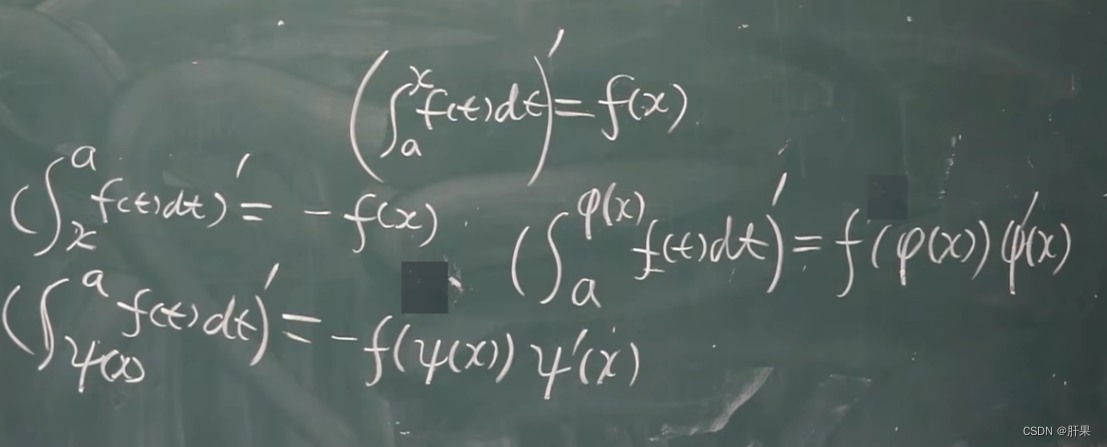 (∫ₐˣ f(t)dt)′ = f(x)
(∫ₓᵃ f(t)dt)′ = -f(x)
(∫ₐ^φ(x) f(t)dt)′ = f(φ(x))φ′(x)
(∫_ψ(x)^a f(t)dt)′ = -f(ψ(x))ψ′(x)
CSDN @肝果